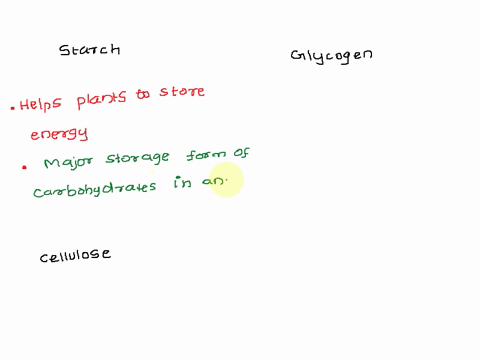 Starch
Glycogen
• Helps plants to store
energy
• Major storage form of
carbohydrates in an
cellulose